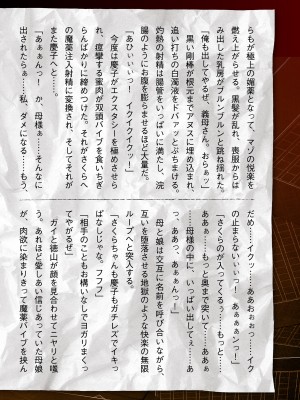 らもが極上の媚薬となって、マゾの悦楽を
燃え上がらせる。黒髪が乱れ、喪服からは
み出した乳房がブルンブルンと跳ね揺れた。
「俺も出してやるぜ、義母さん。おらぁっ」
黒い剛棒が根元までアヌスに埋め込まれ、
追い打ちの白濁液をドバァッとぶちまける。
灼熱の射精は腸管をいっぱいに満たし、浣
腸のようにお腹を膨らませるほど大量だ。
「あひぃぃぃっ！　イクイクイクッ！」
今度は慶子がエクスタシーを極めさせら
れ、痙攣する蜜肉が双頭バイブを食いちぎ
らんばかりに締めつけた。それがさくらへ
の魔薬注入射精に変換され、そしてそれが
また慶子へと……。
「あぁぁんっ！　か、母様ぁ……そんなに
出されたらぁ……私、ダメになる……もう、
だめ……イクっ……ああおぉぉっ……イク
の止まらないぃぃっ！　あぁぁぁンっ！」
「さくらのが入ってくるぅ……もっと……
ああぁ……もっと奥まで突いて……ああぁ
……母様の中に、いっぱい出してぇ……あ
っ、ああっ、あぁぁんっ！」
母と娘は交互に名前を呼び合いながら、
互いを堕落させる地獄のような快楽の無限
ループへと突入する。
「さくらちゃんも慶子もガチレズでイキっ
ぱなしじゃな。フフフ」
「相手のこともお構いなしでヨガリまくっ
てやがるぜ」
ガイと徳山が顔を見合わせてニヤリと嗤
う。あれほど愛しあい信じあっていた母娘
が、肉欲に染まりきって魔薬バイブを挟ん